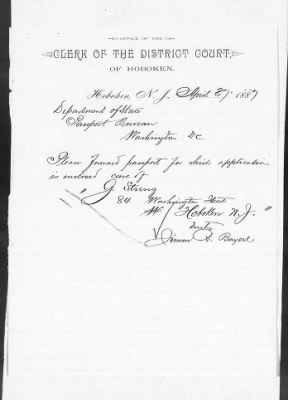 OFFICE OF THE
CLERK OF THE DISTRICT COURT,
OF HOBOKEN.
Hoboken, N. J. April 27. 1887
Department of State
Passport Bureau
Washington DC
Please forward passport for which application
is enclosed care of
" J. Streng
84 Washington Street
Hoboken N. J. "
Truly
Simon A. Bayerl